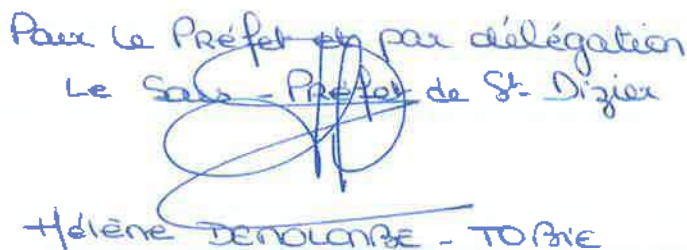 Pour le Préfet et par délégation
Le Sous-Préfet de St-Dizier
Hélène DEMOLOMBE-TOBIE